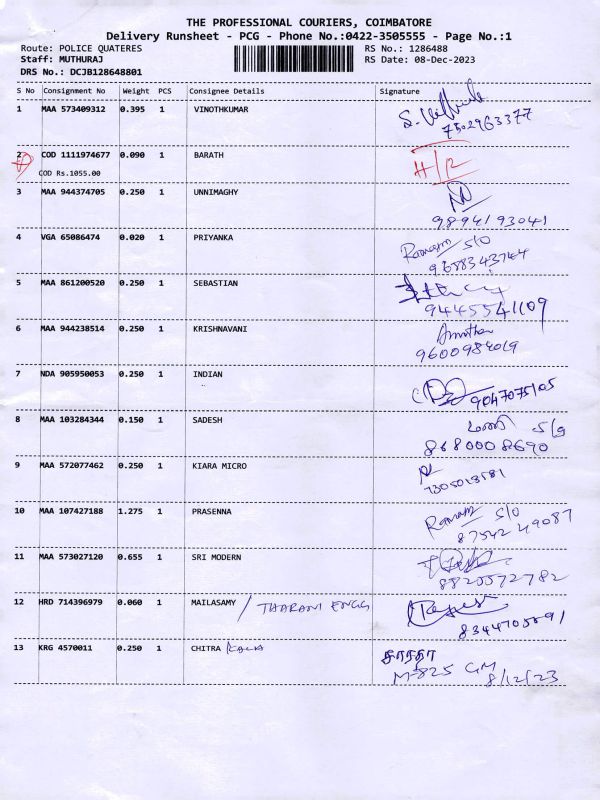 THE PROFESSIONAL COURIERS, COIMBATORE
Delivery Runsheet - PCG - Phone No.:0422-3505555 - Page No.:1
Route: POLICE QUATERES RS No.: 1286488
Staff: MUTHURAJ RS Date: 08-Dec-2023
DRS No.: DCJB128648801
S No Consignment No Weight PCS Consignee Details Signature
1 MAA 573409312 0.395 1 VINOTHKUMAR
7502963377
2 COD 1111974677 0.090 1 BARATH H/R
COD Rs.1055.00
3 MAA 944374705 0.250 1 UNNIMAGHY
9894193041
4 VGA 65086474 0.020 1 PRIYANKA S/O
9688343744
5 MAA 861200520 0.250 1 SEBASTIAN
9445541109
6 MAA 944238514 0.250 1 KRISHNAVANI
9600984019
7 NDA 905950053 0.250 1 INDIAN
9047075105
8 MAA 103284344 0.150 1 SADESH
8680008690
9 MAA 572077462 0.250 1 KIARA MICRO
7305013581
10 MAA 107427188 1.275 1 PRASENNA S/O
8754249087
11 MAA 573027120 0.655 1 SRI MODERN
8820572782
12 HRD 714396979 0.060 1 MAILASAMY / THARANI ENGG
13 KRG 4570011 0.250 1 CHITRA Kala சாரதா
M-825 GM
8/12/23